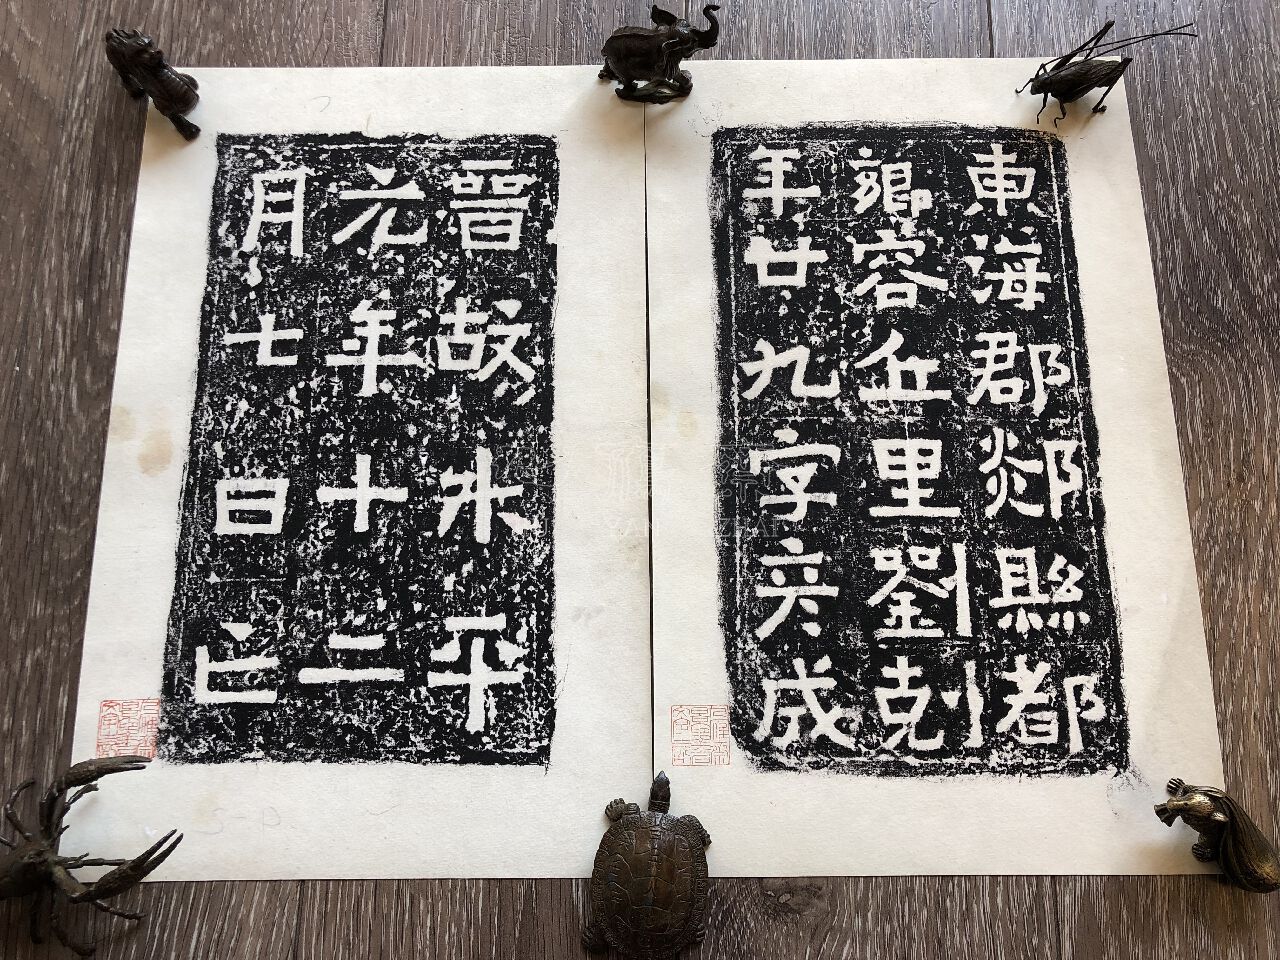 東海郡郯縣都
鄉容丘里劉剋
年廿九字彦成
晉故升平
元年十二
月七日亡